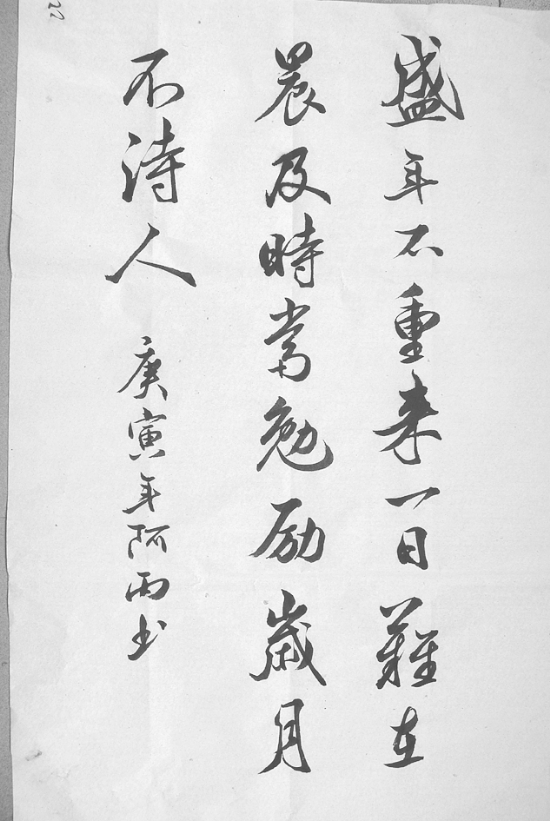 盛年不重来一日難在
晨及時當勉励歲月
不待人
庚寅年阿雨书
22